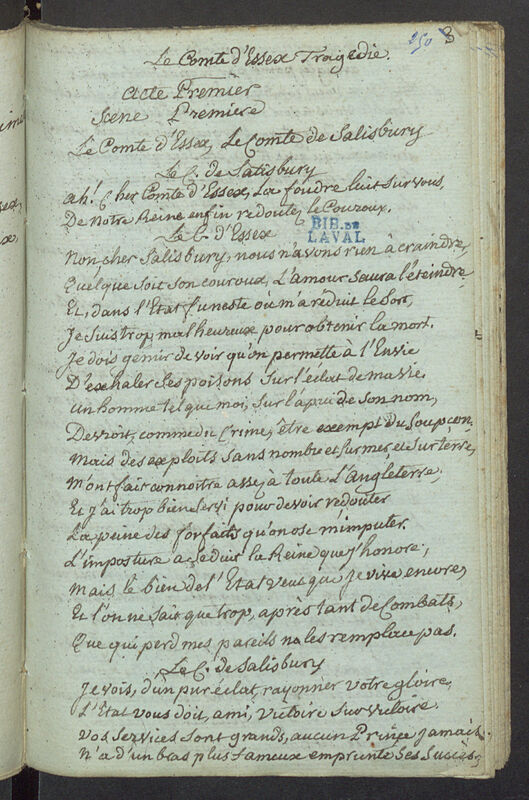 250 3
Le Comte d'Essex Tragedie.
Acte Premier
Scene Premiere
Le Comte d'Essex, Le Comte de Salisbury
Le C. de Salisbury
Ah! Cher Comte d'Essex, La foudre luit sur vous,
De Notre Reine enfin redoutez le Couroux.
Le C. d'Essex
BIB. DE
LAVAL
Non cher Salisbury, nous n'avons rien à craindre,
Quelque soit son couroux, L'amour saura l'éteindre
Et, dans l'Etat funeste où m'a reduit le Sort,
Je suis trop malheureux pour obtenir la mort.
Je dois gemir de voir qu'on permette à l'Envie
D'exhaler ses poisons Sur l'éclat de ma vie.
un homme tel que moi, Sur l'apui de Son nom,
Devroit, comme du Crime, être exempt du Soupçon.
Mais des exploits Sans nombre et Sur mer, et Sur terre,
M'ont fait connoitre assez à toute L'Angleterre,
Et j'ai trop bien Servi pour devoir redouter
La peine des forfaits qu'on ose m'imputer.
L'imposture a Seduit la Reine que j'honore;
Mais le bien de l'Etat veut que Je vive encore,
Et l'on ne Sait que trop, après tant de Combats,
Que qui perd mes pareils ne les remplace pas.
Le C. de Salisbury
Je vois, d'un pur éclat, rayonner votre gloire,
L'Etat vous doit, ami, Victoire Sur Victoire
Vos Services Sont grands, aucun Prince jamais
N'a d'un bras plus fameux emprunté Ses Succès,